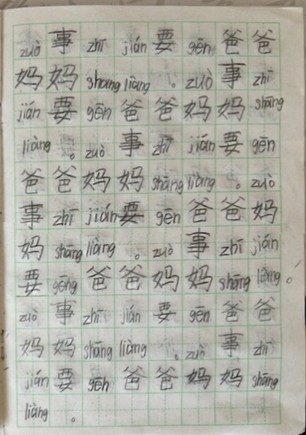 zuò 事 zhī jián 要 gēn 爸 爸
妈 妈 shāng liàng 。 zuò 事 zhī
jián 要 gēn 爸 爸 妈 妈 shāng
liàng 。 zuò 事 zhī jián 要 gēn
爸 爸 妈 妈 shāng liàng 。 zuò
事 zhī jiján 要 gēn 爸 爸 妈
妈 shāng liàng 。 zuò 事 zhī jián
要 gēng 爸 爸 妈 妈 shāng liàng 。
zuò 事 zhī jián 要 gēn 爸 爸
妈 妈 shāng liàng 。 zuò 事 zhī
jián 要 gēn 爸 爸 妈 妈 shāng
liàng 。